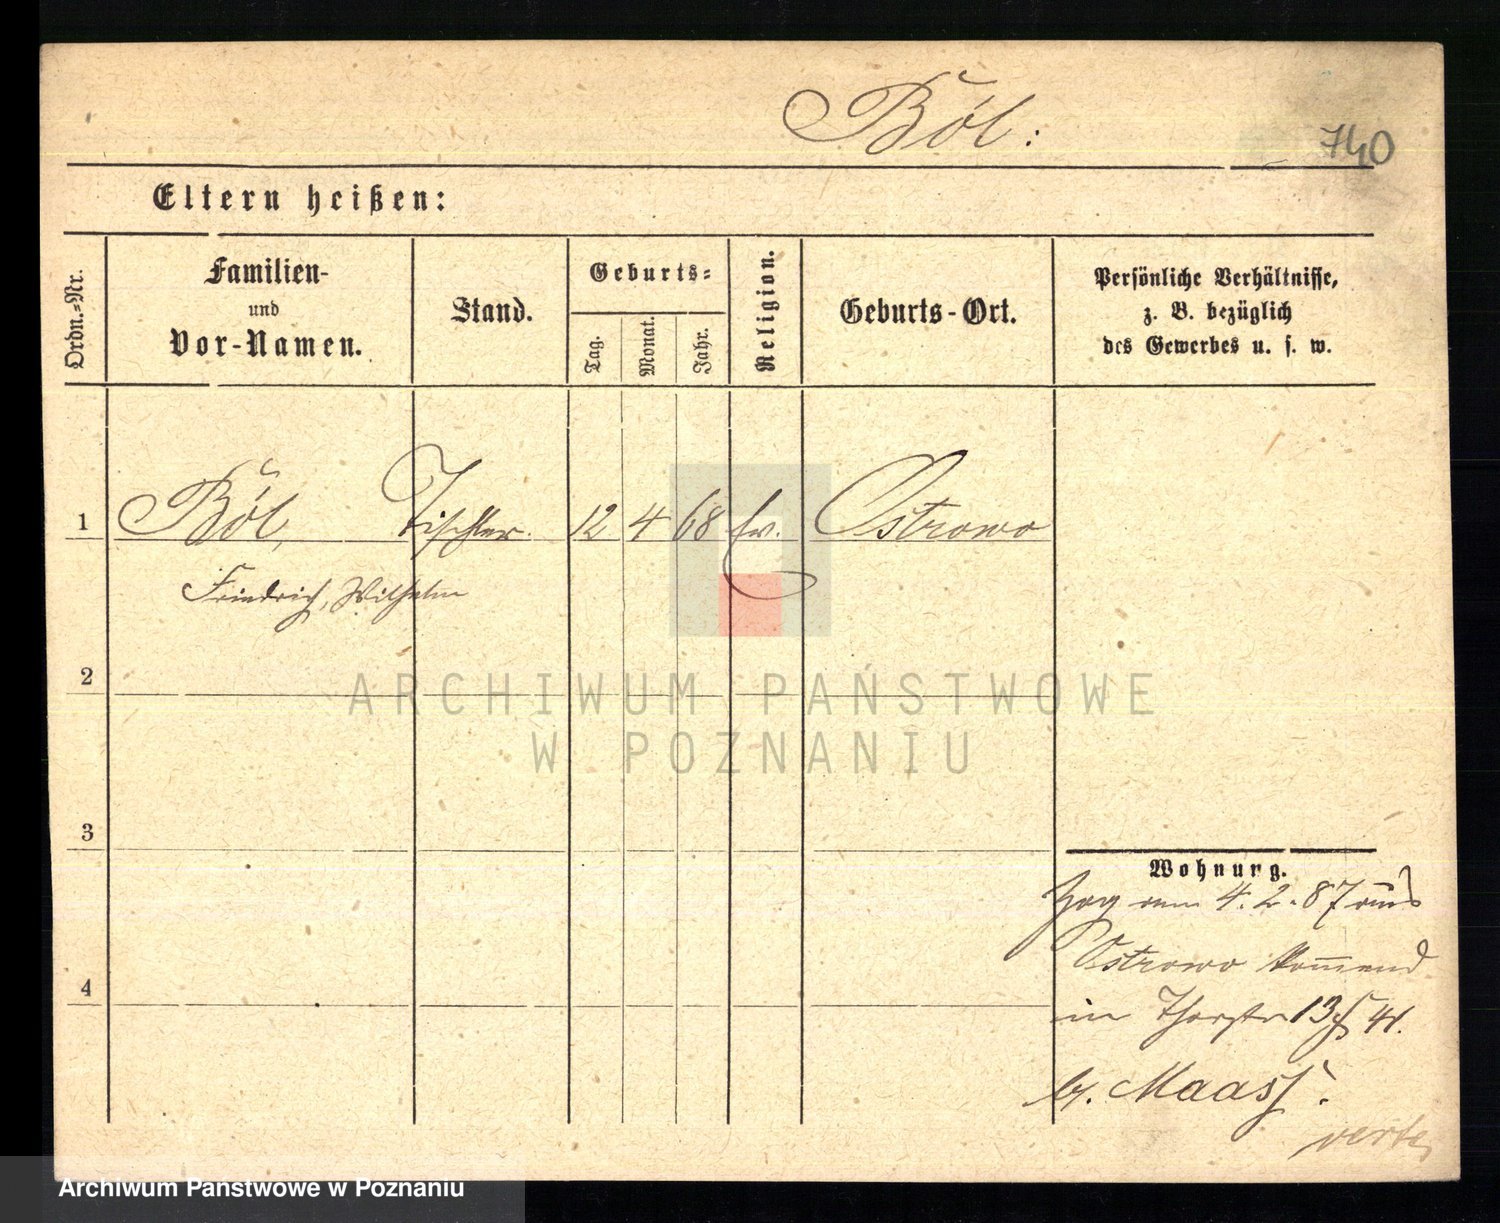 Böl:
740
Eltern heißen:
Ordn.-Nr.
Familien-
und
Vor-Namen.
Stand.
Geburts-
Tag.
Monat.
Jahr.
Religion.
Geburts-Ort.
Persönliche Verhältnisse,
z. B. bezüglich
des Gewerbes u. s. w.
1 Böl, Tischler. 12 4 68 ev. Ostrowo
Friedrich, Wilhelm
2
3
4
Wohnung.
Zog am 4. 2. 87 aus
Ostrowo kommend
in Thorstr 13
b. Maass.
verte
ARCHIWUM PAŃSTWOWE
W POZNANIU
Archiwum Państwowe w Poznaniu